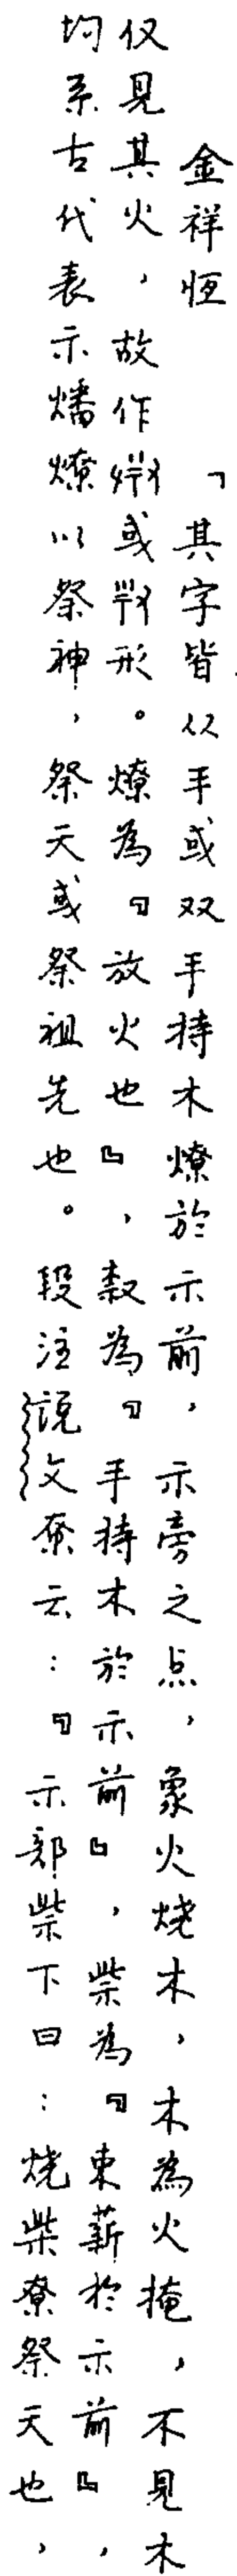 金祥恒 「其字皆从手或双手持木燎於示前，示旁之点，象火烧木，木為火掩，不見木
仅見其火，故作或形。燎為『放火也』，𣀈為『手持木於示前』，柴為『束薪於示前』，
均系古代表示燔燎以祭神，祭天或祭祖先也。段注说文尞云：『示部柴下曰：烧柴尞祭天也，